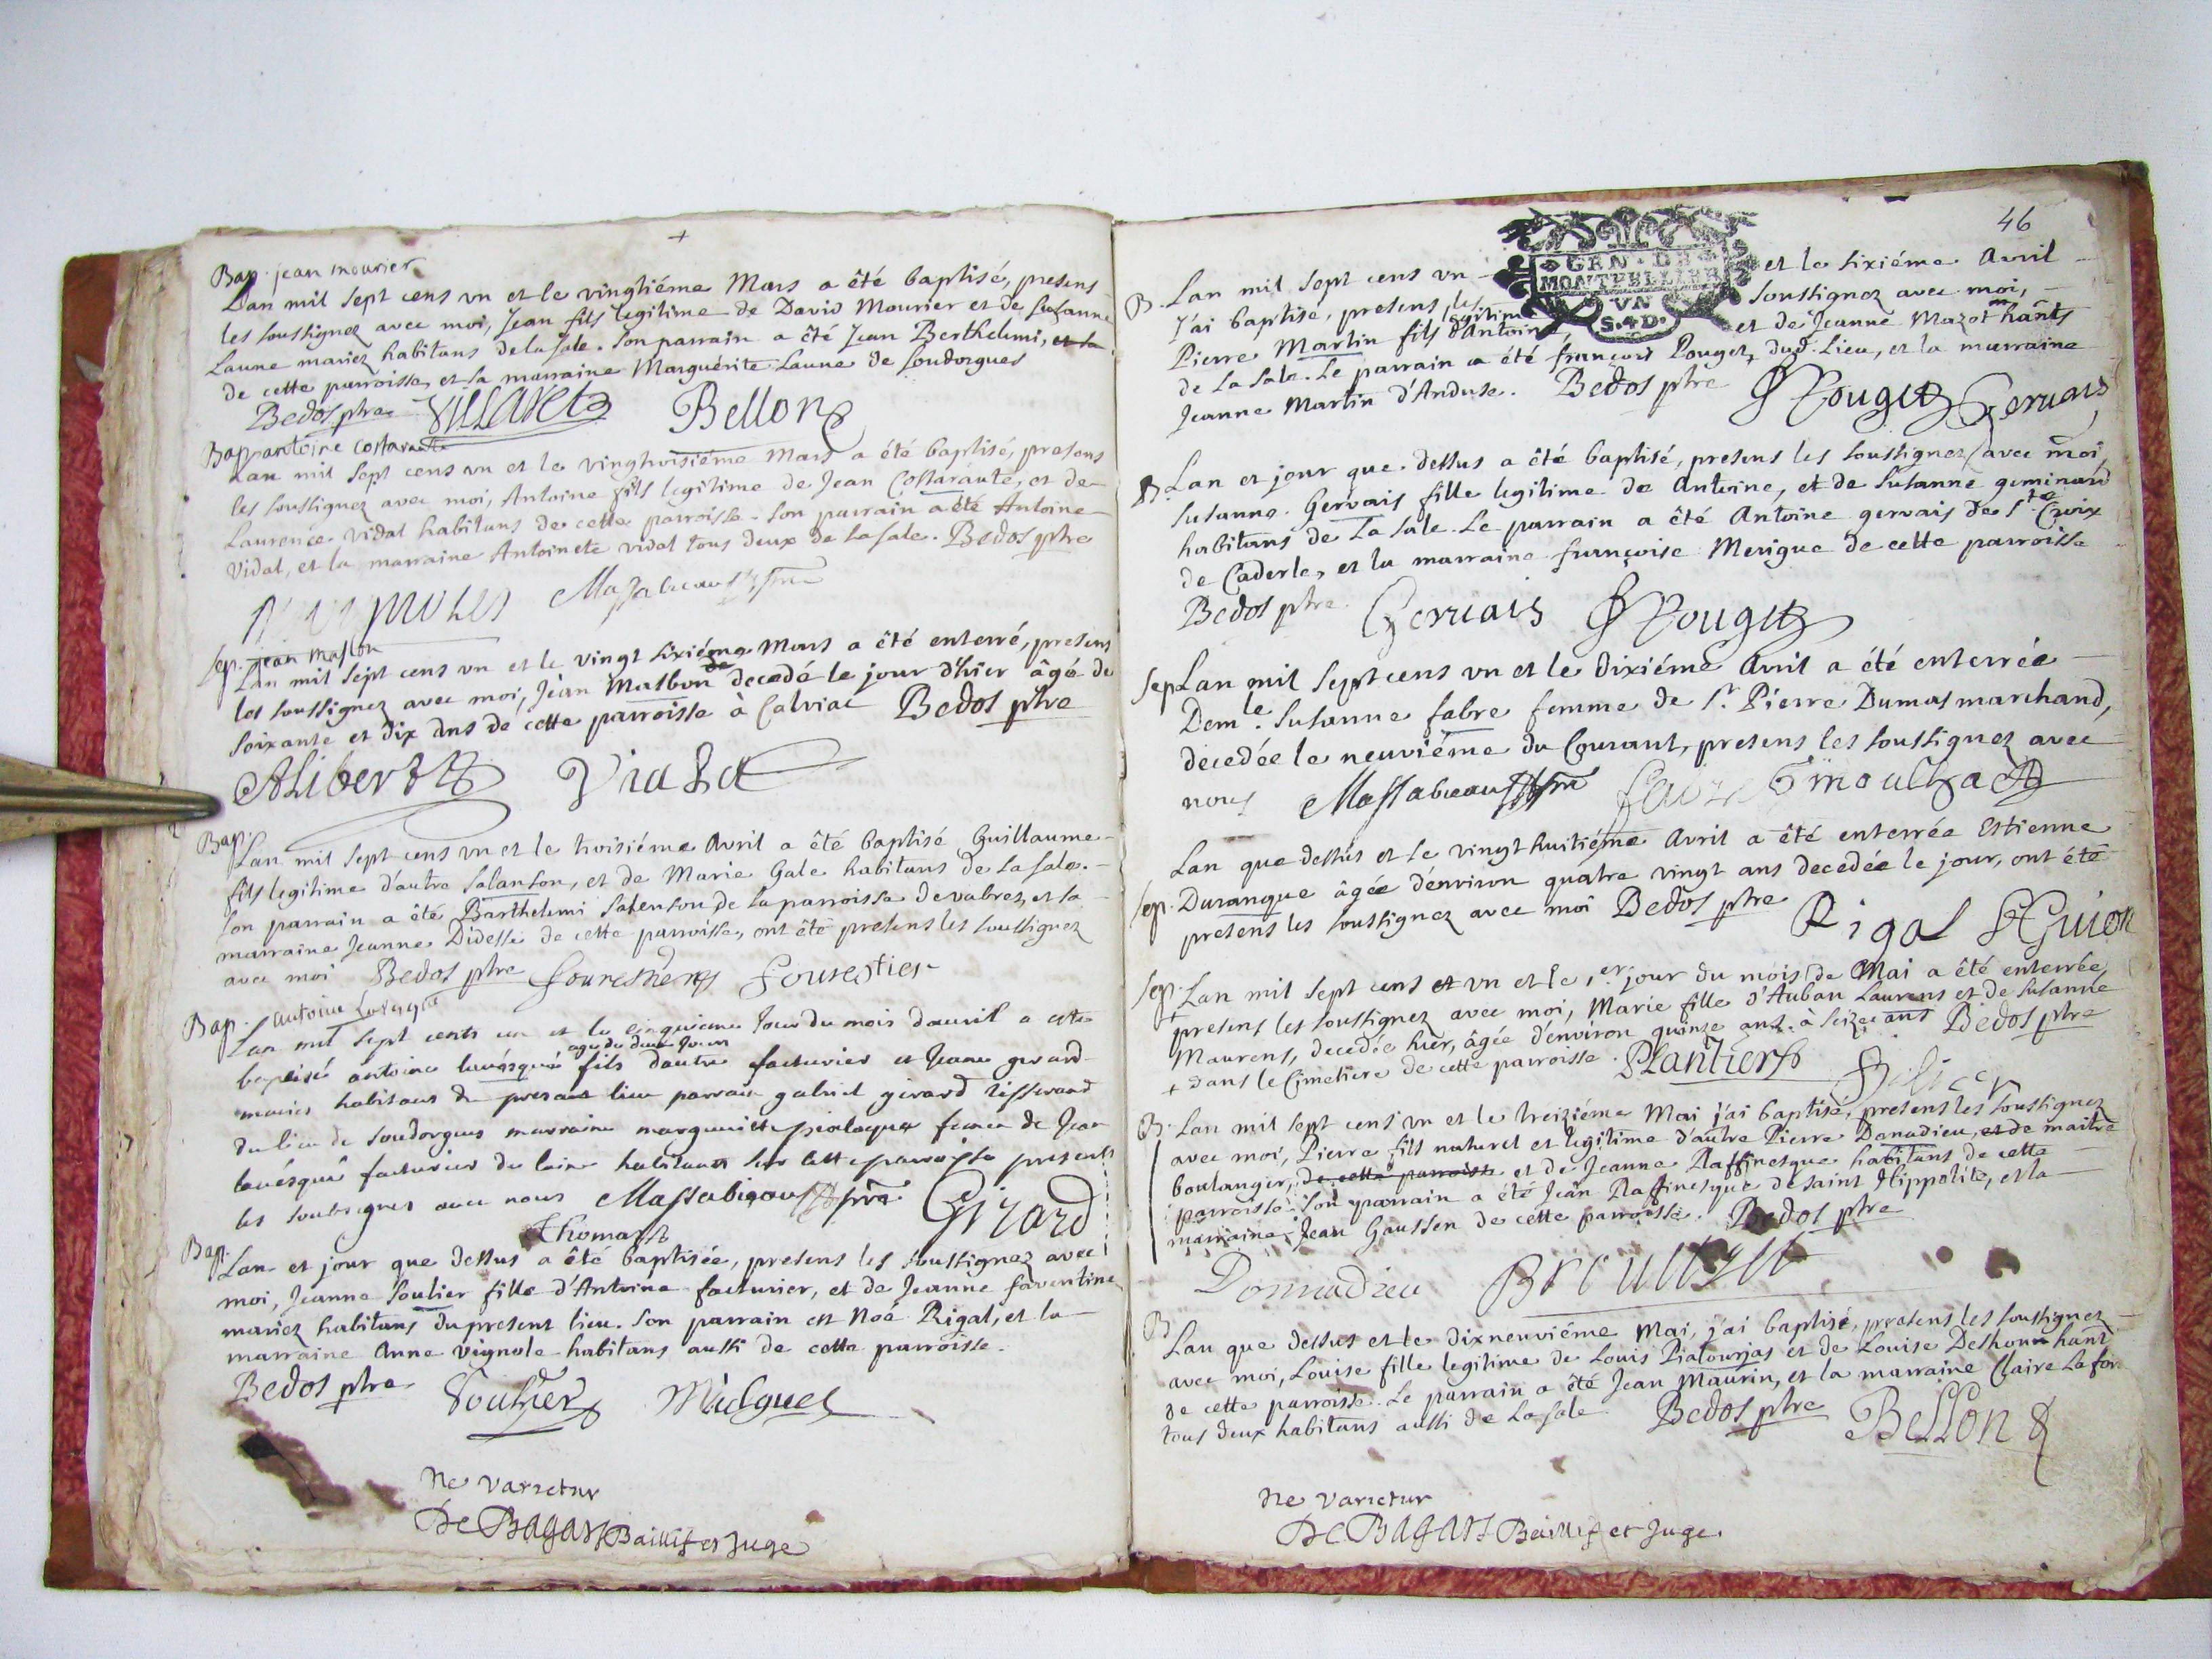 Bap. jean mourier
Lan mil sept cens vn et le vingtiéme Mars a êté baptisé, presens
les soussignez avec moi, Jean fils legitime de David Mourier et de Suzanne
Laune mariez habitans de la sale. Son parrain a êté Jean Berthelemi, et la
de cette parroisse, et sa marraine Marguérite Laune de soudorgues
Bedos ptre VILLARET Bellon
Bap antoine costarante
Lan mil sept cens vn et le vingttroisiéme Mars a été baptisé, presens
les soussignez avec moi, Antoine fils legitime de Jean Costarante, et de
Laurence Vidal habitans de cette parroisse. Son parrain a êté Antoine
Vidal, et la marraine Antoinete vidal tous deux de la sale. Bedos ptre
Massabieau
Sep. jean masbon
Lan mil sept cens vn et le vingt sixiéme Mars a êté enterré, presens
les soussignez avec moi, Jean Masbon decedé le jour d'hier âgé de
soixante et dix ans de cette parroisse à Calviac Bedos ptre
ALibert Viala
Bap.
Lan mil sept cens vn et le troisiéme Avril a êté baptisé Guillaume
fils legitime d'autre Salanson, et de Marie Gale habitans de la sale.
son parrain a êté Barthelemi Salenson de la parroisse de vabres, et sa
marraine Jeanne Didesse de cette parroisse, ont êté presens les soussignez
avec moi Bedos ptre fourestier Fourestier
Bap. antoine
Lan mil sept cents un et le cinquieme Jour du mois dauril a este
agé de deux Jours
baptisé antoine leuésqué fils dautre facturier et Jeane girard
mariés habitans du presant lieu parrain gabriel girard tisserand
du lieu de soudorgues marraine marguerite piolaque feme de Jean
leuésqué facturier de laine habitans sur cette parroisse presents
les soubsignes auec nous Massabieau Girard
Thomas
Bap.
Lan et jour que dessus a êté baptisée, presens les soussignez avec
moi, Jeanne Soulier fille d'Antoine facturier, et de Jeanne faventine
mariez habitans du present lieu. Son parrain est Noé Rigal, et la
marraine Anne vignole habitans aussi de cette parroisse.
Bedos ptre Soulier
Ne Varietur
De BAGARS Baillif et Juge
46
GEN · DE
MONTPELLIER
VN
S. 4 D.
B. Lan mil sept cens vn et le sixiéme Avril
j'ai baptisé, presens les soussignez avec moi,
legitime
Pierre Martin fils d'Antoine, et de Jeanne Mazot hânts
de La Sale. Le parrain a êté françois Pouget, dud. Lieu, et la marraine
Jeanne Martin d'Anduse. Bedos ptre Pouget Geruais
B. Lan et jour que dessus a êté baptisé, presens les soussignez avec moi,
Susanne Gervais fille legitime de Antoine, et de Susanne geminard
habitans de La Sale. Le parrain a êté Antoine gervais de Ste Croix
de Caderle, et la marraine françoise Merigue de cette parroisse
Bedos ptre Geruais Pouget
Sep Lan mil sept cens vn et le dixiéme Avril a été enterrée
Demle Susanne fabre femme de Sr. Pierre Dumas marchand,
decedée le neuviéme du Courant, presens les soussignez avec
nous Massabieau
Lan que dessus et le vingt huitiéme Avril a êté enterrée Estienne
Sep. Durangue âgée d'environ quatre vingt ans decedée le jour, ont été
presens les soussignez avec moi Bedos ptre Rigal Guion
Sep. Lan mil sept cens et vn et le 1er. jour du mois de Mai a êté enterrée
presens les soussignez avec moi, Marie fille d'Auban Laurens et de Susanne
Maurens, decedée hier, âgée d'environ quinze ans. à seize ans Bedos ptre
+ dans le Cimetiere de cette parroisse. PLantier
B. Lan mil sept cens vn et le treiziéme Mai j'ai baptisé, presens les soussignez
avec moi, Pierre fils naturel et legitime d'autre Pierre Donadieu, et de maitre
boulanger, de cette parroisse et de Jeanne Raffinesque habitans de cette
parroisse. Son parrain a êté Jean Raffinesque de saint Hippolite, et la
marraine Jean Gaussen de cette parroisse. Bedos ptre
Donnadieu
B Lan que dessus et le dixneuviéme Mai, j'ai baptisé, presens les soussignez
avec moi, Louise fille legitime de Louis Pialourjas et de Louise Deshoun hant
de cette parroisse. Le parrain a êté Jean Maurin, et la marraine Claire Lafon
tous deux habitans aussi de La sale Bedos ptre Bellon
Ne Varietur
De BAGARS Baillif et Juge.